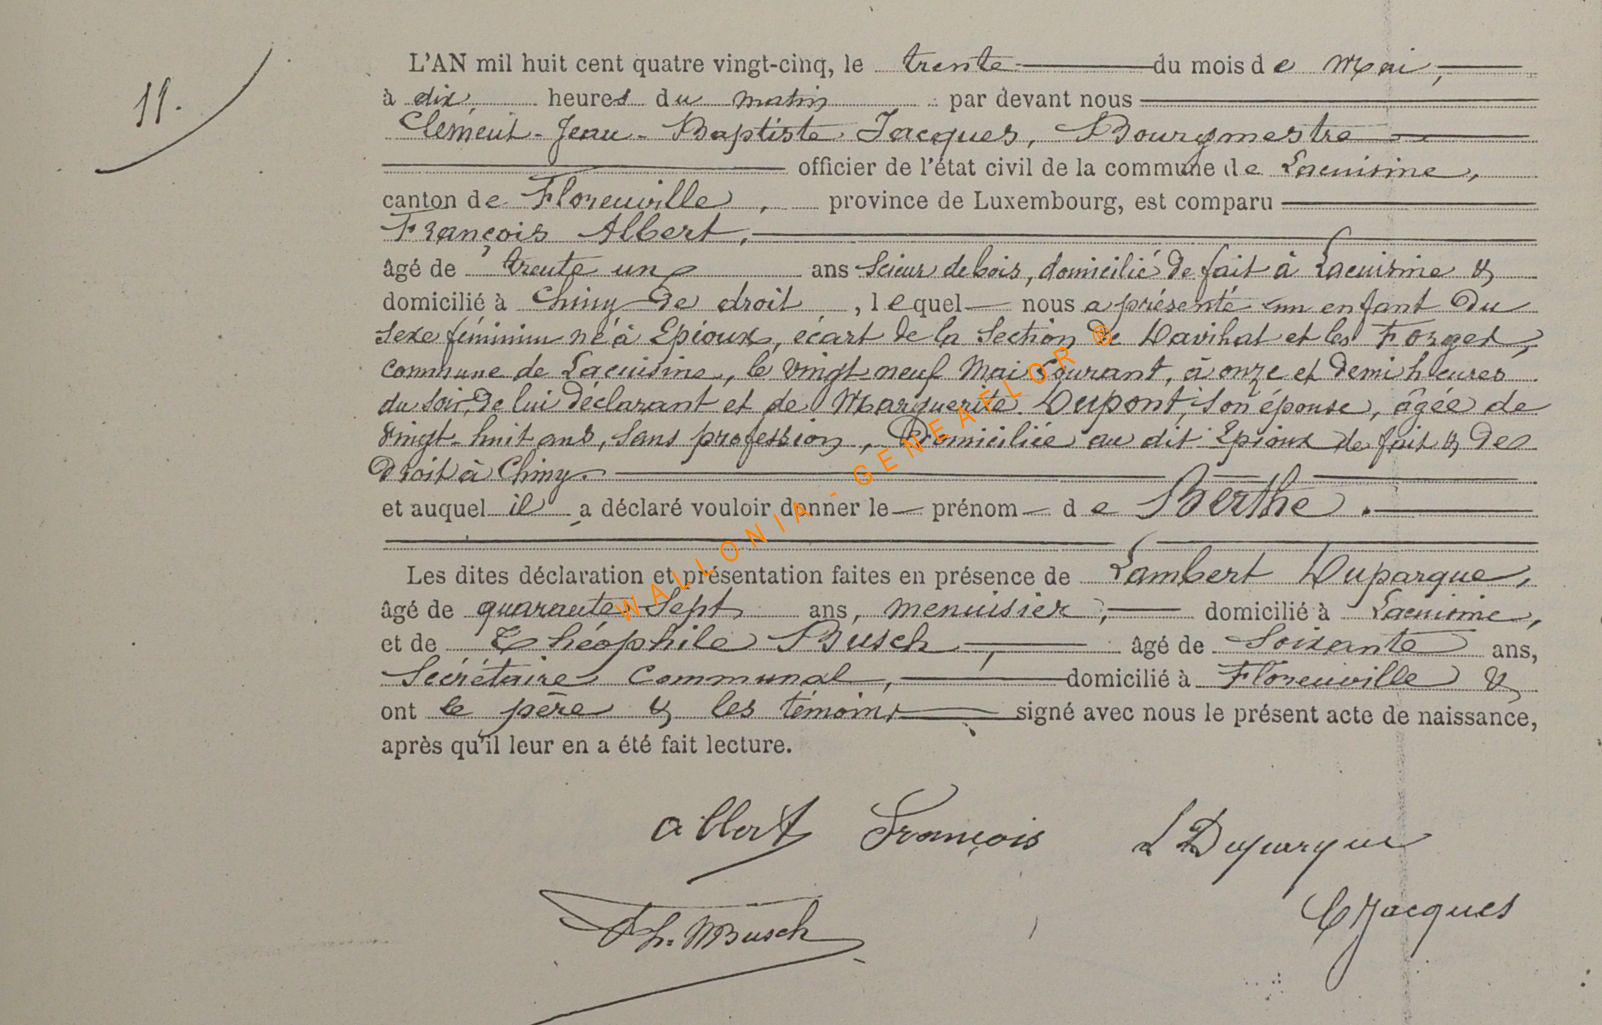 11.
L'AN mil huit cent quatre vingt-cinq, le trente du mois de Mai,
à dix heures du matin par devant nous
Clément-Jean-Baptiste Jacques, Bourgmestre
officier de l'état civil de la commune de Lacuisine,
canton de Florenville, province de Luxembourg, est comparu
François Albert,
âgé de trente un ans Scieur de bois, domicilié de fait à Lacuisine &
domicilié à Chiny de droit, lequel nous a présenté un enfant du
sexe féminin né à Epioux, écart de la Section de et les Forges,
commune de Lacuisine, le vingt-neuf Mai courant, à onze et demi heures
du soir, de lui déclarant et de Marguerite Dupont, son épouse, âgée de
vingt-huit ans, sans profession, Domiciliée au dit Epioux de fait & de
Droit à Chiny.
et auquel il a déclaré vouloir donner le prénom de Berthe.
Les dites déclaration et présentation faites en présence de Lambert Duparque,
âgé de quarante Sept ans, menuisier, domicilié à Lacuisine,
et de Théophile Busch, âgé de Soixante ans,
Secrétaire Communal, domicilié à Florenville &
ont le père & les témoins signé avec nous le présent acte de naissance,
après qu'il leur en a été fait lecture.
Albert François L Duparque
Th. Busch CJacques
WALLONIA - GENEAFLOR ®